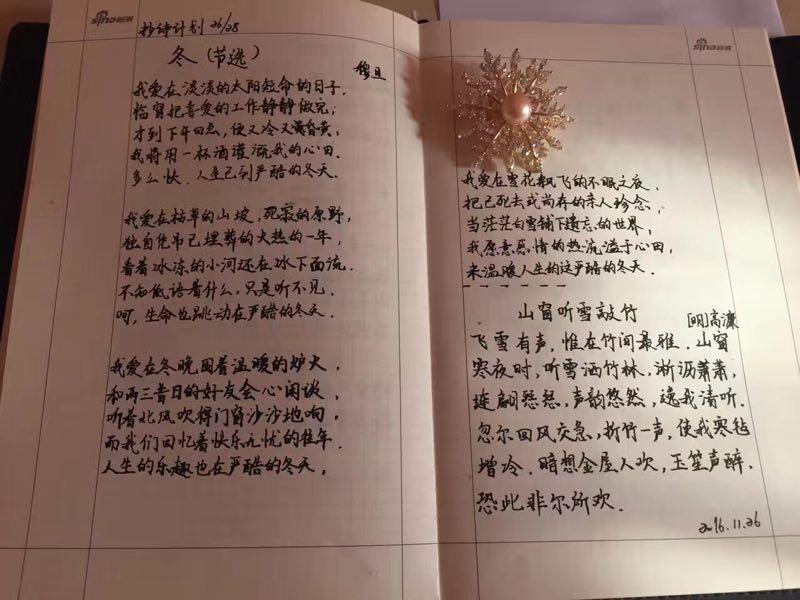 sina新浪
抄诗计划 26/28
冬（节选）
穆旦
我爱在淡淡的太阳短命的日子，
临窗把喜爱的工作静静做完；
才到下午四点，便又冷又昏黄，
我将用一杯酒灌溉我的心田．
多么快，人生已到严酷的冬天．
我爱在枯草的山坡，死寂的原野，
独自凭吊已埋葬的火热的一年，
看着冰冻的小河还在冰下面流，
不知低语着什么，只是听不见．
呵，生命也跳动在严酷的冬天．
我爱在冬晚围着温暖的炉火，
和两三昔日的好友会心闲谈，
听着北风吹得门窗沙沙地响，
而我们回忆着快乐无忧的往年．
人生的乐趣也在严酷的冬天．
sina新浪
我爱在雪花飘飞的不眠之夜，
把已死去或尚存的亲人珍念，
当茫茫白雪铺下遗忘的世界，
我愿意感情的热流溢于心田，
来温暖人生的这严酷的冬天．
------
山窗听雪敲竹
[明]高濂
飞雪有声，惟在竹间最雅．山窗
寒夜时，听雪洒竹林，淅沥萧萧，
连翩瑟瑟，声韵悠然，逸我清听．
忽尔回风交急，折竹一声，使我寒毡
增冷．暗想金屋人欢，玉笙声醉，
恐此非尔所欢．
2016.11.26